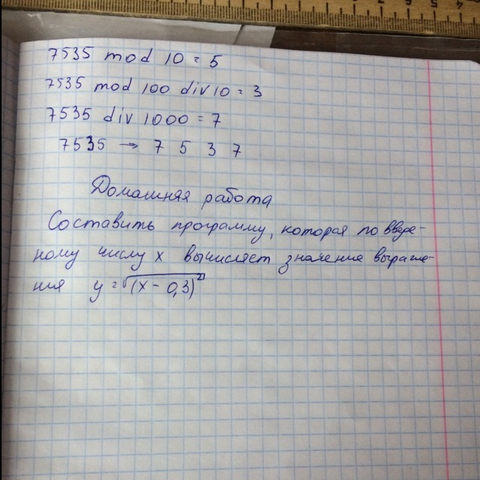 7535 mod 10 = 5
7535 mod 100 div 10 = 3
7535 div 1000 = 7
7535 → 7 5 3 7
Домашняя работа
Составить программу, которая по введе-
ному числу x вычисляет значение выраже-
ния y = √(x - 0,3)²